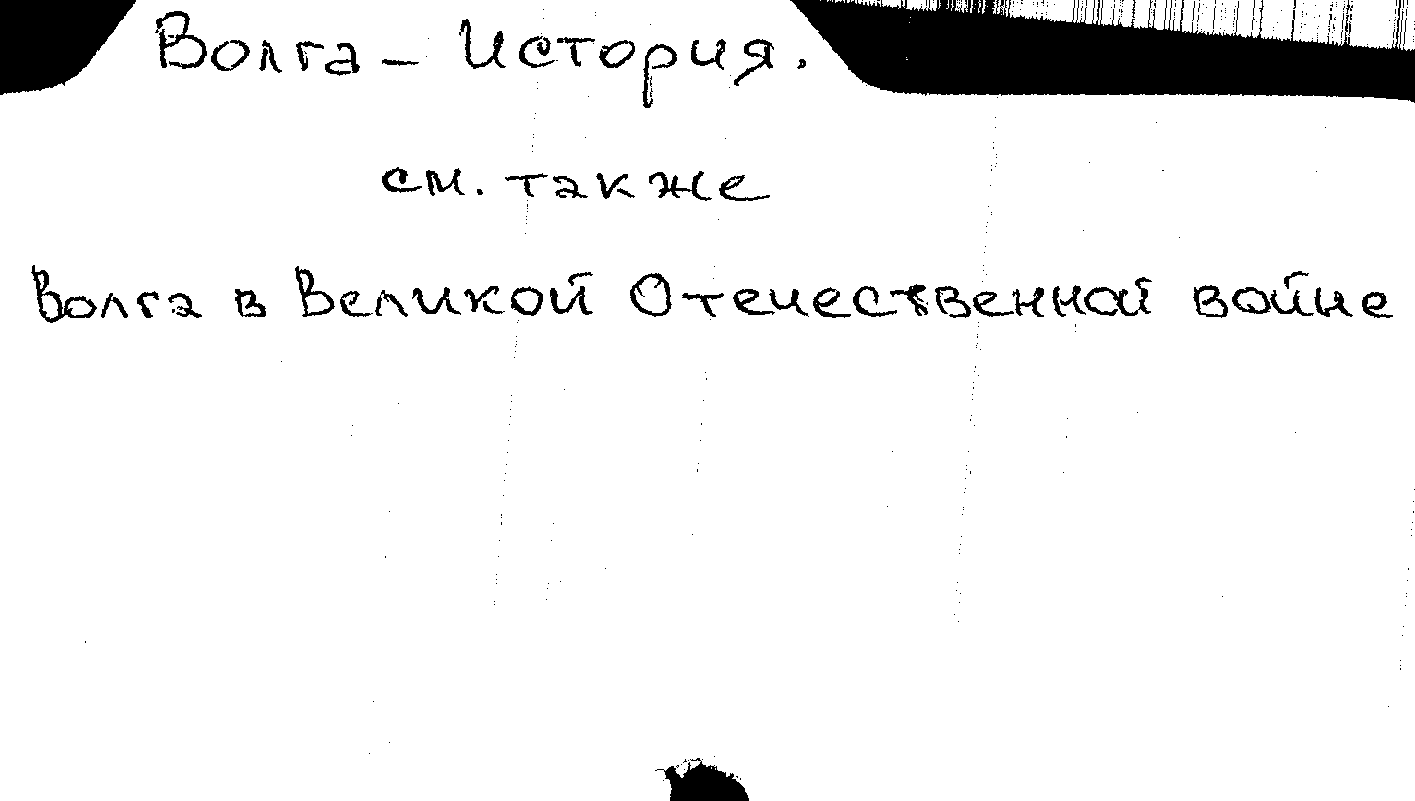 Волга – История.
см. также
Волга в Великой Отечественной войне